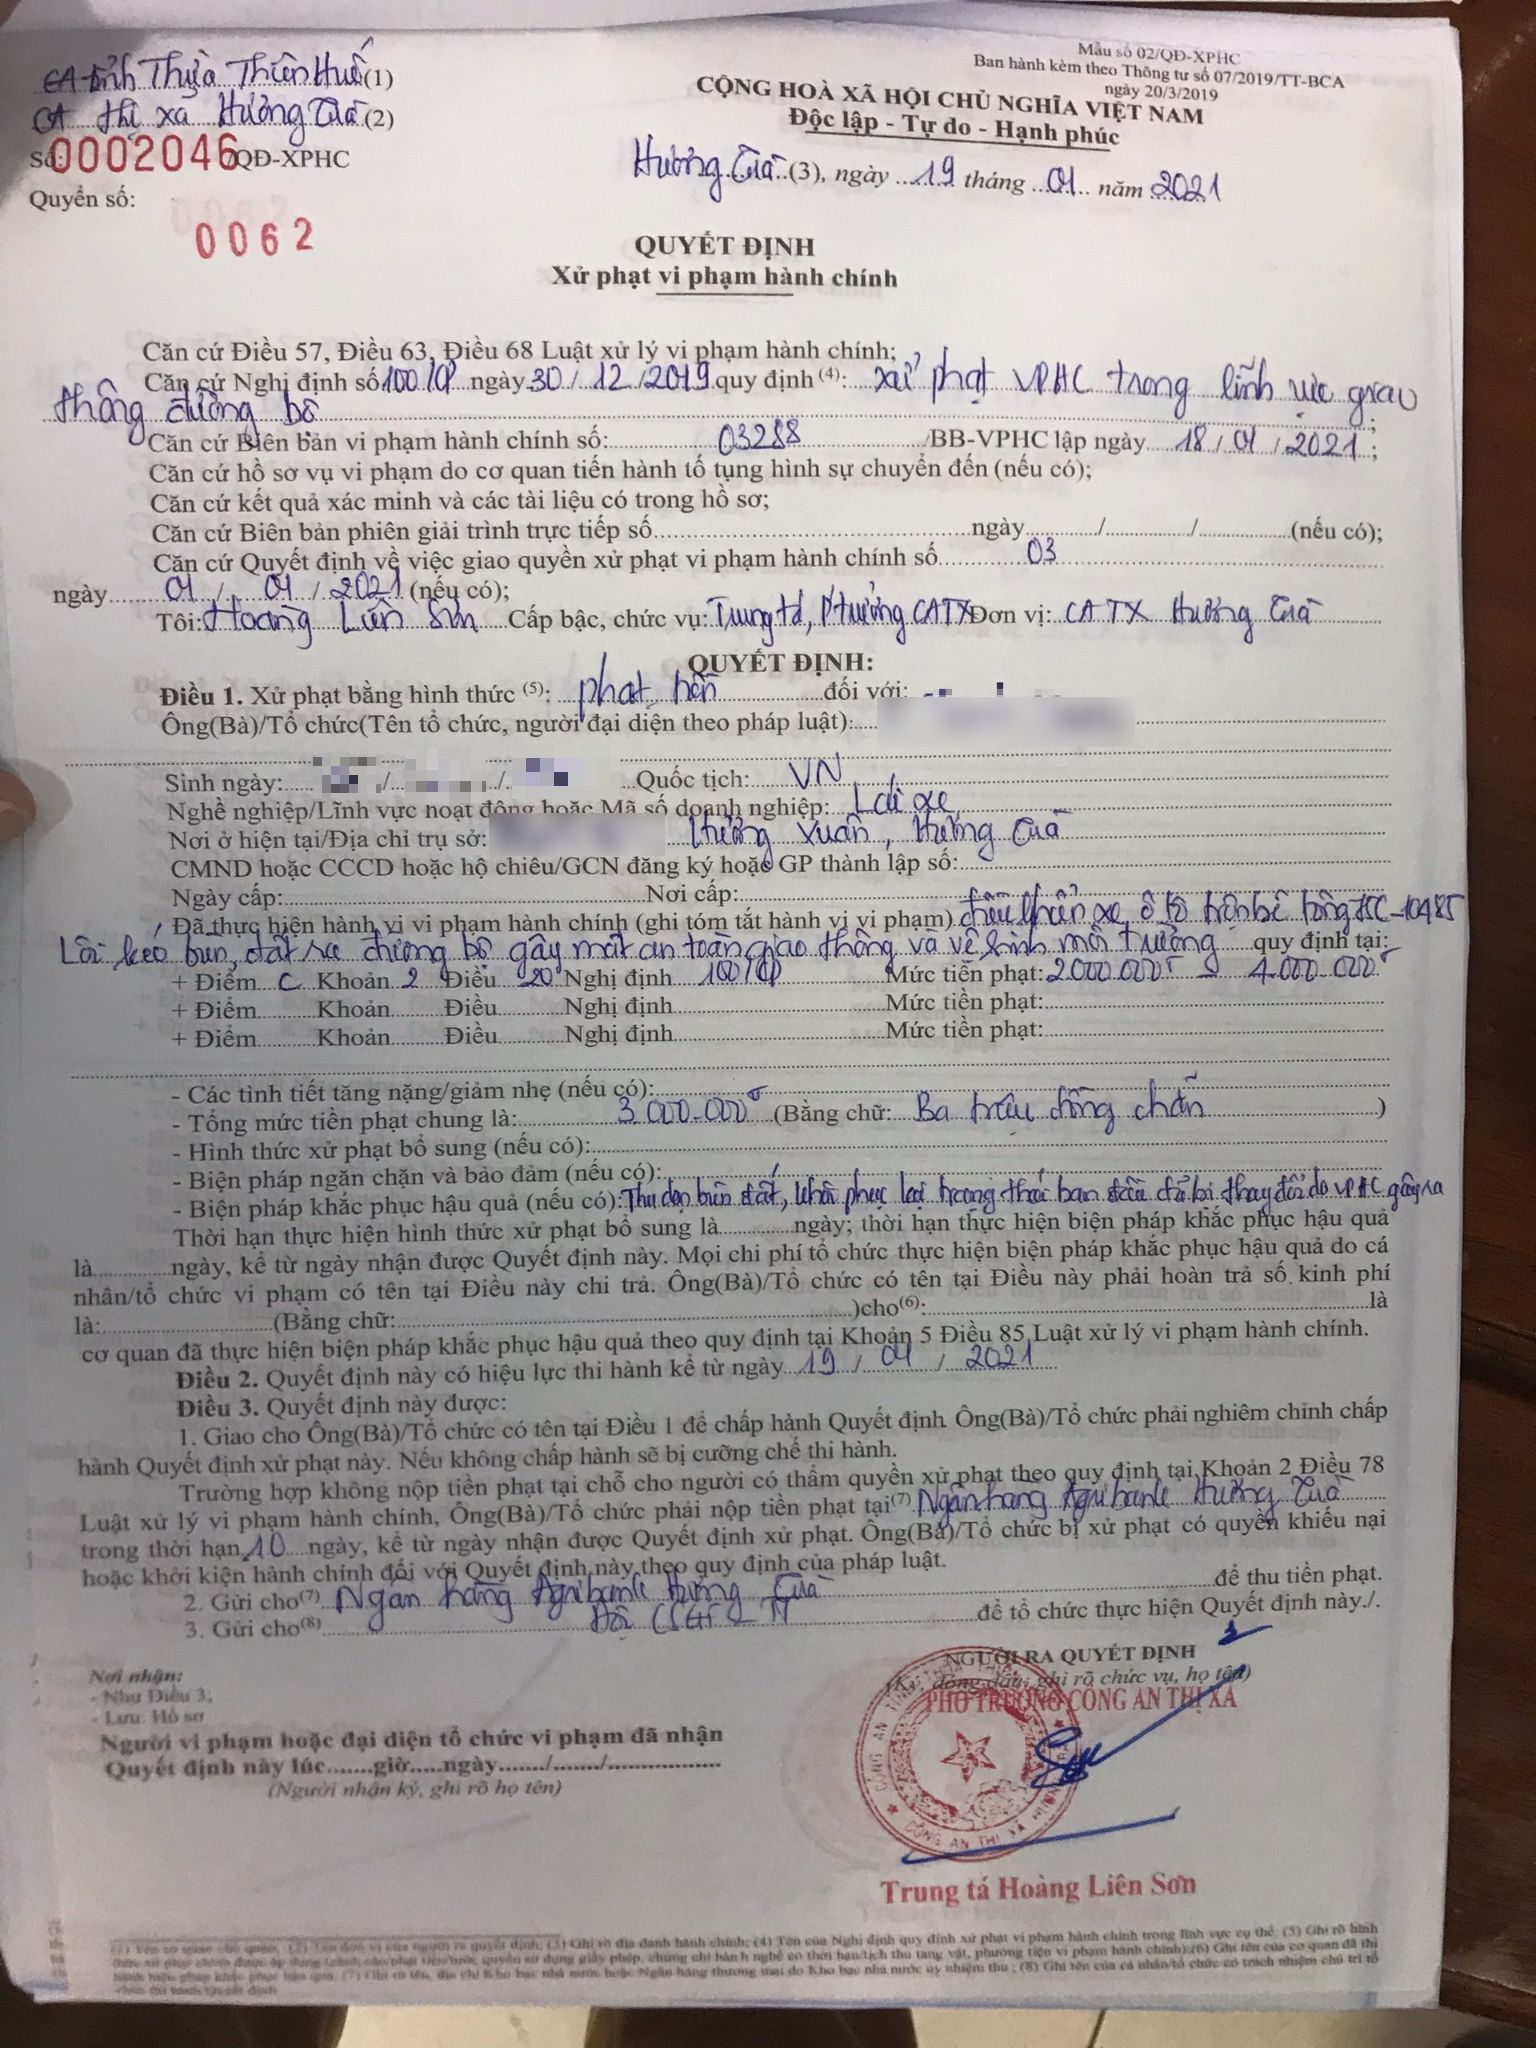 Mẫu số 02/QĐ-XPHC
Ban hành kèm theo Thông tư số 07/2019/TT-BCA
ngày 20/3/2019
CA tỉnh Thừa Thiên Huế (1)
CA thị xã Hương Trà (2)
Số: 0002046 QĐ-XPHC
Quyển số:
0062
CỘNG HOÀ XÃ HỘI CHỦ NGHĨA VIỆT NAM
Độc lập - Tự do - Hạnh phúc
Hương Trà (3), ngày 19 tháng 01 năm 2021
QUYẾT ĐỊNH
Xử phạt vi phạm hành chính
Căn cứ Điều 57, Điều 63, Điều 68 Luật xử lý vi phạm hành chính;
Căn cứ Nghị định số 100/CP ngày 30/12/2019 quy định (4): xử phạt VPHC trong lĩnh vực giao
thông đường bộ;
Căn cứ Biên bản vi phạm hành chính số: 03288 /BB-VPHC lập ngày 18/01/2021;
Căn cứ hồ sơ vụ vi phạm do cơ quan tiến hành tố tụng hình sự chuyển đến (nếu có);
Căn cứ kết quả xác minh và các tài liệu có trong hồ sơ;
Căn cứ Biên bản phiên giải trình trực tiếp số......ngày....../....../......(nếu có);
Căn cứ Quyết định về việc giao quyền xử phạt vi phạm hành chính số 03
ngày 01/01/2021 (nếu có);
Tôi: Hoàng Liên Sơn Cấp bậc, chức vụ: Trung tá, P trưởng CATX Đơn vị: CATX Hương Trà
QUYẾT ĐỊNH:
Điều 1. Xử phạt bằng hình thức (5): phạt tiền đối với:
Ông(Bà)/Tổ chức(Tên tổ chức, người đại diện theo pháp luật):
Sinh ngày: / / Quốc tịch: VN
Nghề nghiệp/Lĩnh vực hoạt động hoặc Mã số doanh nghiệp: Lái xe
Nơi ở hiện tại/Địa chỉ trụ sở: Hương Xuân, Hương Trà
CMND hoặc CCCD hoặc hộ chiếu/GCN đăng ký hoặc GP thành lập số:
Ngày cấp: Nơi cấp:
Đã thực hiện hành vi vi phạm hành chính (ghi tóm tắt hành vi vi phạm) điều khiển xe ô tô trộn bê tông 75C-10485
Lôi kéo bùn, đất ra đường bộ gây mất an toàn giao thông và vệ sinh môi trường quy định tại:
+ Điểm c Khoản 2 Điều 20 Nghị định 100/CP Mức tiền phạt: 2.000.000đ - 4.000.000đ
+ Điểm Khoản Điều Nghị định Mức tiền phạt:
+ Điểm Khoản Điều Nghị định Mức tiền phạt:
- Các tình tiết tăng nặng/giảm nhẹ (nếu có):
- Tổng mức tiền phạt chung là: 3.000.000đ (Bằng chữ: Ba triệu đồng chẵn)
- Hình thức xử phạt bổ sung (nếu có):
- Biện pháp ngăn chặn và bảo đảm (nếu có):
- Biện pháp khắc phục hậu quả (nếu có): Thu dọn bùn đất, khôi phục lại trạng thái ban đầu đã bị thay đổi do VPHC gây ra
Thời hạn thực hiện hình thức xử phạt bổ sung là......ngày; thời hạn thực hiện biện pháp khắc phục hậu quả
là......ngày, kể từ ngày nhận được Quyết định này. Mọi chi phí tổ chức thực hiện biện pháp khắc phục hậu quả do cá
nhân/tổ chức vi phạm có tên tại Điều này chi trả. Ông(Bà)/Tổ chức có tên tại Điều này phải hoàn trả số kinh phí
là:......(Bằng chữ:......)cho(6):......là
cơ quan đã thực hiện biện pháp khắc phục hậu quả theo quy định tại Khoản 5 Điều 85 Luật xử lý vi phạm hành chính.
Điều 2. Quyết định này có hiệu lực thi hành kể từ ngày 19/01/2021
Điều 3. Quyết định này được:
1. Giao cho Ông(Bà)/Tổ chức có tên tại Điều 1 để chấp hành Quyết định. Ông(Bà)/Tổ chức phải nghiêm chỉnh chấp
hành Quyết định xử phạt này. Nếu không chấp hành sẽ bị cưỡng chế thi hành.
Trường hợp không nộp tiền phạt tại chỗ cho người có thẩm quyền xử phạt theo quy định tại Khoản 2 Điều 78
Luật xử lý vi phạm hành chính, Ông(Bà)/Tổ chức phải nộp tiền phạt tại(7) Ngân hàng Agribank Hương Trà
trong thời hạn 10 ngày, kể từ ngày nhận được Quyết định xử phạt. Ông(Bà)/Tổ chức bị xử phạt có quyền khiếu nại
hoặc khởi kiện hành chính đối với Quyết định này theo quy định của pháp luật.
2. Gửi cho(7) Ngân hàng Agribank Hương Trà để thu tiền phạt.
3. Gửi cho(8) Đội CSGT để tổ chức thực hiện Quyết định này./.
Nơi nhận:
- Như Điều 3;
- Lưu: Hồ sơ
Người vi phạm hoặc đại diện tổ chức vi phạm đã nhận
Quyết định này lúc.......giờ.....ngày......./......./.......
(Người nhận ký, ghi rõ họ tên)
NGƯỜI RA QUYẾT ĐỊNH
(Ký, đóng dấu; ghi rõ chức vụ, họ tên)
PHÓ TRƯỞNG CÔNG AN THỊ XÃ
CÔNG AN THỊ XÃ HƯƠNG TRÀ
Trung tá Hoàng Liên Sơn
(3) Ghi rõ địa danh hành chính; (4) Tên của Nghị định quy định xử phạt vi phạm hành chính trong lĩnh vực cụ thể; (5) Ghi rõ hình